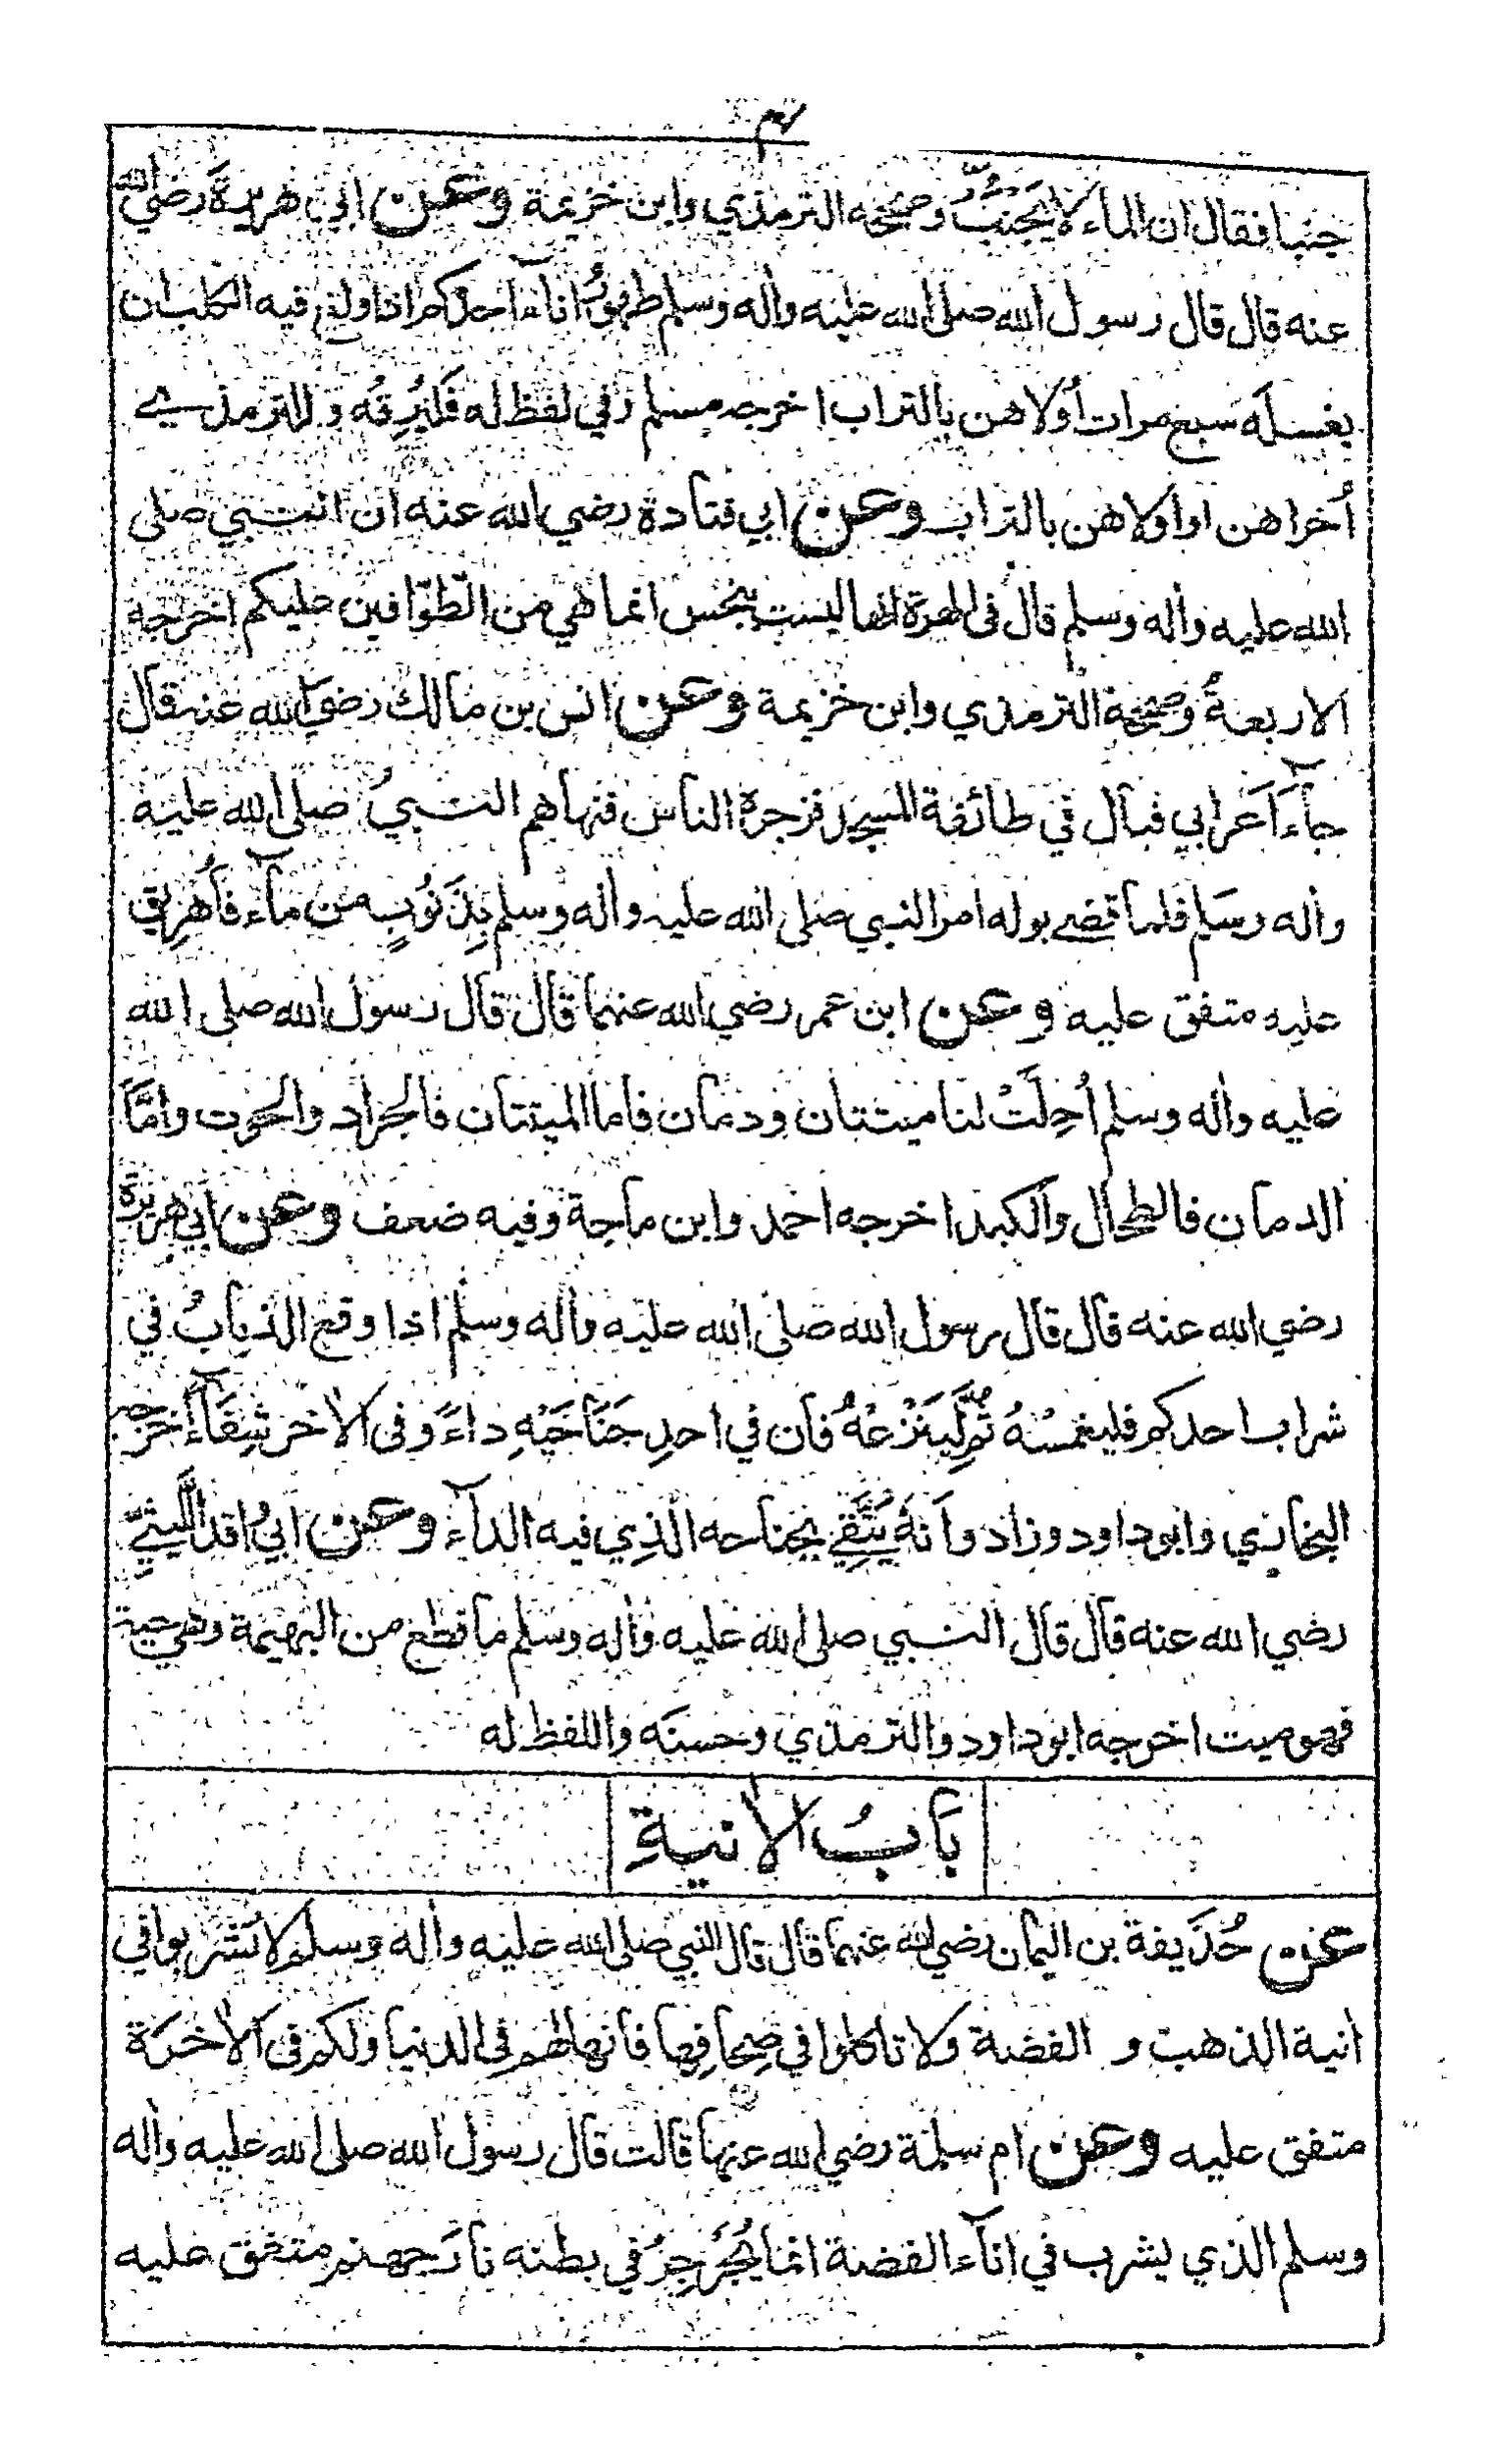 جنبا فقال ان الماء لا يَجْنُبُ وصححه الترمذي وابن خزيمة وعن ابي هريرة رضي الله
عنه قال قال رسول الله صلى الله عليه واله وسلم طهورُ اناء احدكم اذا ولغ فيه الكلب ان
يغسله سبع مرات أولاهن بالتراب اخرجه مسلم وفي لفظ له فَليُرِقْه وللترمذي
أخراهن او أولاهن بالتراب وعن ابي قتادة رضي الله عنه ان النبي صلى
الله عليه واله وسلم قال في الهرة انها ليست بنجس انما هي من الطّوّافين عليكم اخرجه
الاربعةُ وصححه الترمذي وابن خزيمة وعن انس بن مالك رضي الله عنه قال
جآءَ اَعرابي فبال في طائفة المسجد فزجره الناس فنهاهم النبيُ صلى الله عليه
واله وسلم فلما قضى بوله امر النبي صلى الله عليه واله وسلم بِذَنُوبٍ من مآء فأُهرِيق
عليه متفق عليه وعن ابن عمر رضي الله عنهما قال قال رسول الله صلى الله
عليه واله وسلم أُحِلَّتْ لنا ميتتان ودمان فاما الميتتان فالجراد والحوت وامَّا
الدمان فالطحال والكبد اخرجه احمد وابن ماجة وفيه ضعف وعن ابي هريرة
رضي الله عنه قال قال رسول الله صلى الله عليه واله وسلم اذا وقع الذبابُ في
شراب احدكم فليغمسْهُ ثُمَّ لِيَنْزِعْهُ فان في احدِ جَنَاحَيْهِ داءً وفى الاٰخر شِفَآءً اخرجه
البخاري وابو داود وزاد وأنهُ يَتَّقِي بجناحه الذِي فيه الدآء وعن ابي واقد اللَّيثيِّ
رضي الله عنه قال قال النبي صلى الله عليه واله وسلم ما قطع من البهيمة وهي حية
فهو ميت اخرجه ابو داود والترمذي وحسنه واللفظ له
بابُ الاٰنيةِ
عن حُذَيفة بن اليمان رضي الله عنهما قال قال النبي صلى الله عليه واله وسلم لا تشربوا في
اٰنية الذهب و الفضة ولا تاكلوا في صِحافِها فانها لهم في الدنيا ولكم فى الاٰخرة
متفق عليه وعن ام سلمة رضي الله عنها قالت قال رسول الله صلى الله عليه واله
وسلم الذي يشرب في انآء الفضة انما يُجَرْجِرُ في بطنه نارَ جهنم متفق عليه